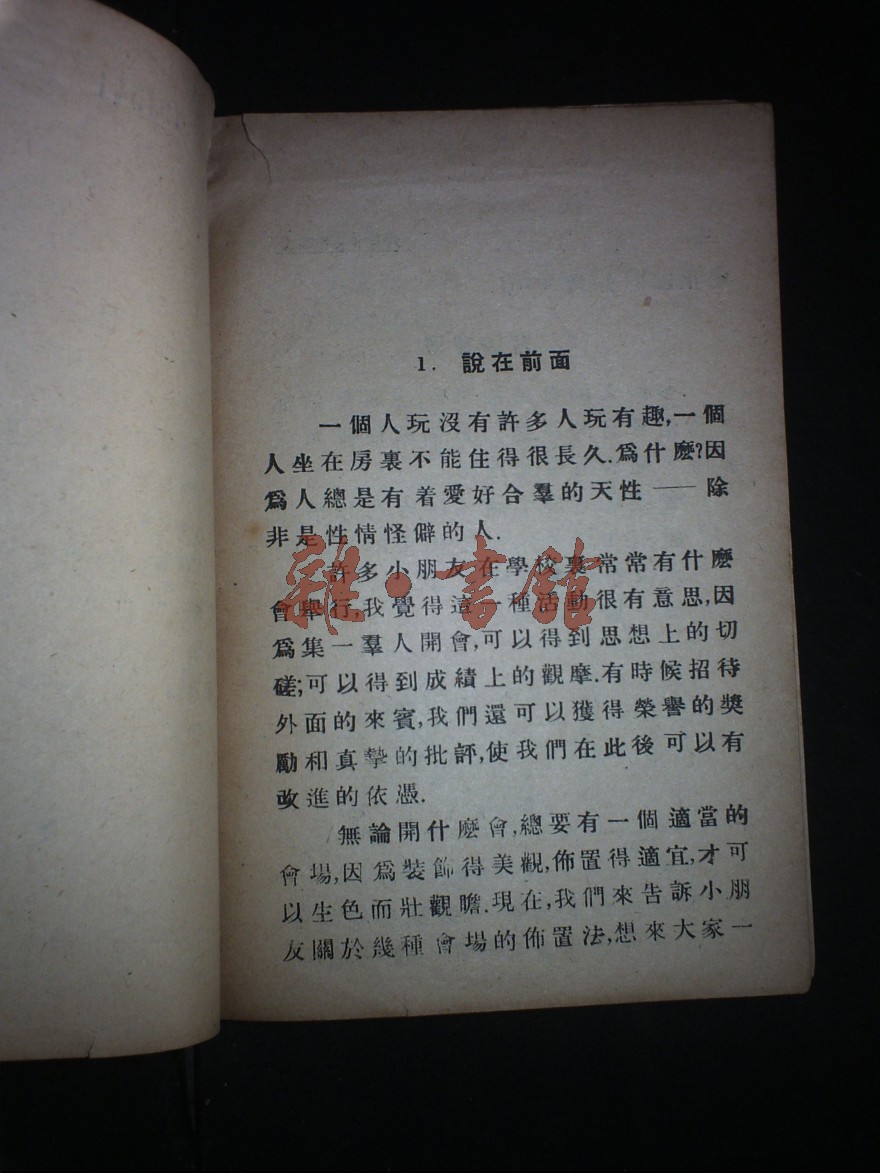 1. 說在前面
一個人玩沒有許多人玩有趣,一個
人坐在房裏不能住得很長久.爲什麽?因
爲人總是有着愛好合羣的天性——除
非是性情怪僻的人.
許多小朋友在學校裏常常有什麽
會舉行,我覺得這一種活動很有意思,因
爲集一羣人開會,可以得到思想上的切
磋;可以得到成績上的觀摩.有時候招待
外面的來賓,我們還可以獲得榮譽的獎
勵和真摯的批評,使我們在此後可以有
改進的依憑.
無論開什麽會,總要有一個適當的
會場,因爲裝飾得美觀,佈置得適宜,才可
以生色而壯觀瞻.現在,我們來告訴小朋
友關於幾種會場的佈置法,想來大家一
雜·書館